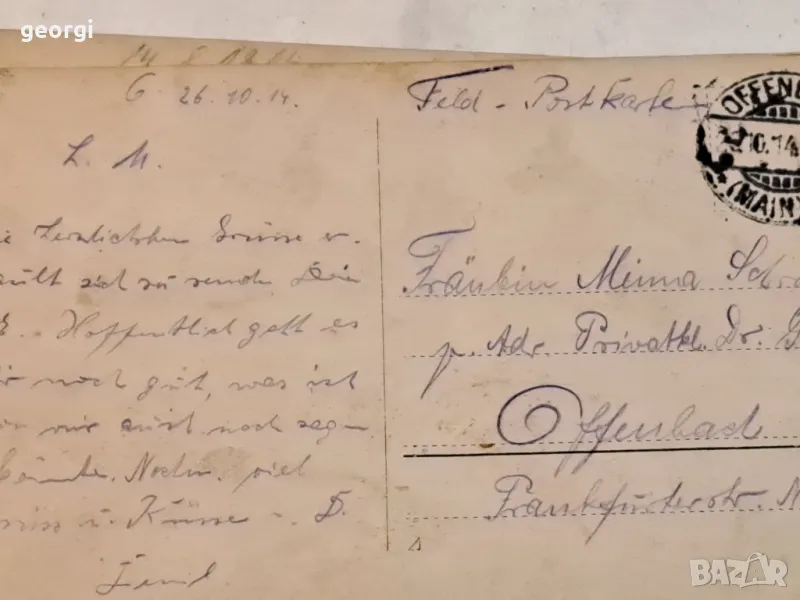 georgi
26.10.14.
L. M.
Herzlichsten Grüsse er-
sich zu sende Dein
Hoffentlich geht es
noch gut, was ist
mir auch noch sagen
könnte. Nochm. viel
u. Küsse - D.
Emil
Feld-Postkarte
OFFENB
10.14
(MAIN)
Fräulein Meina Schr
p. Adr. Privatkl. Dr. G
Offenbach
Frankfurterstr. N
BAZAR